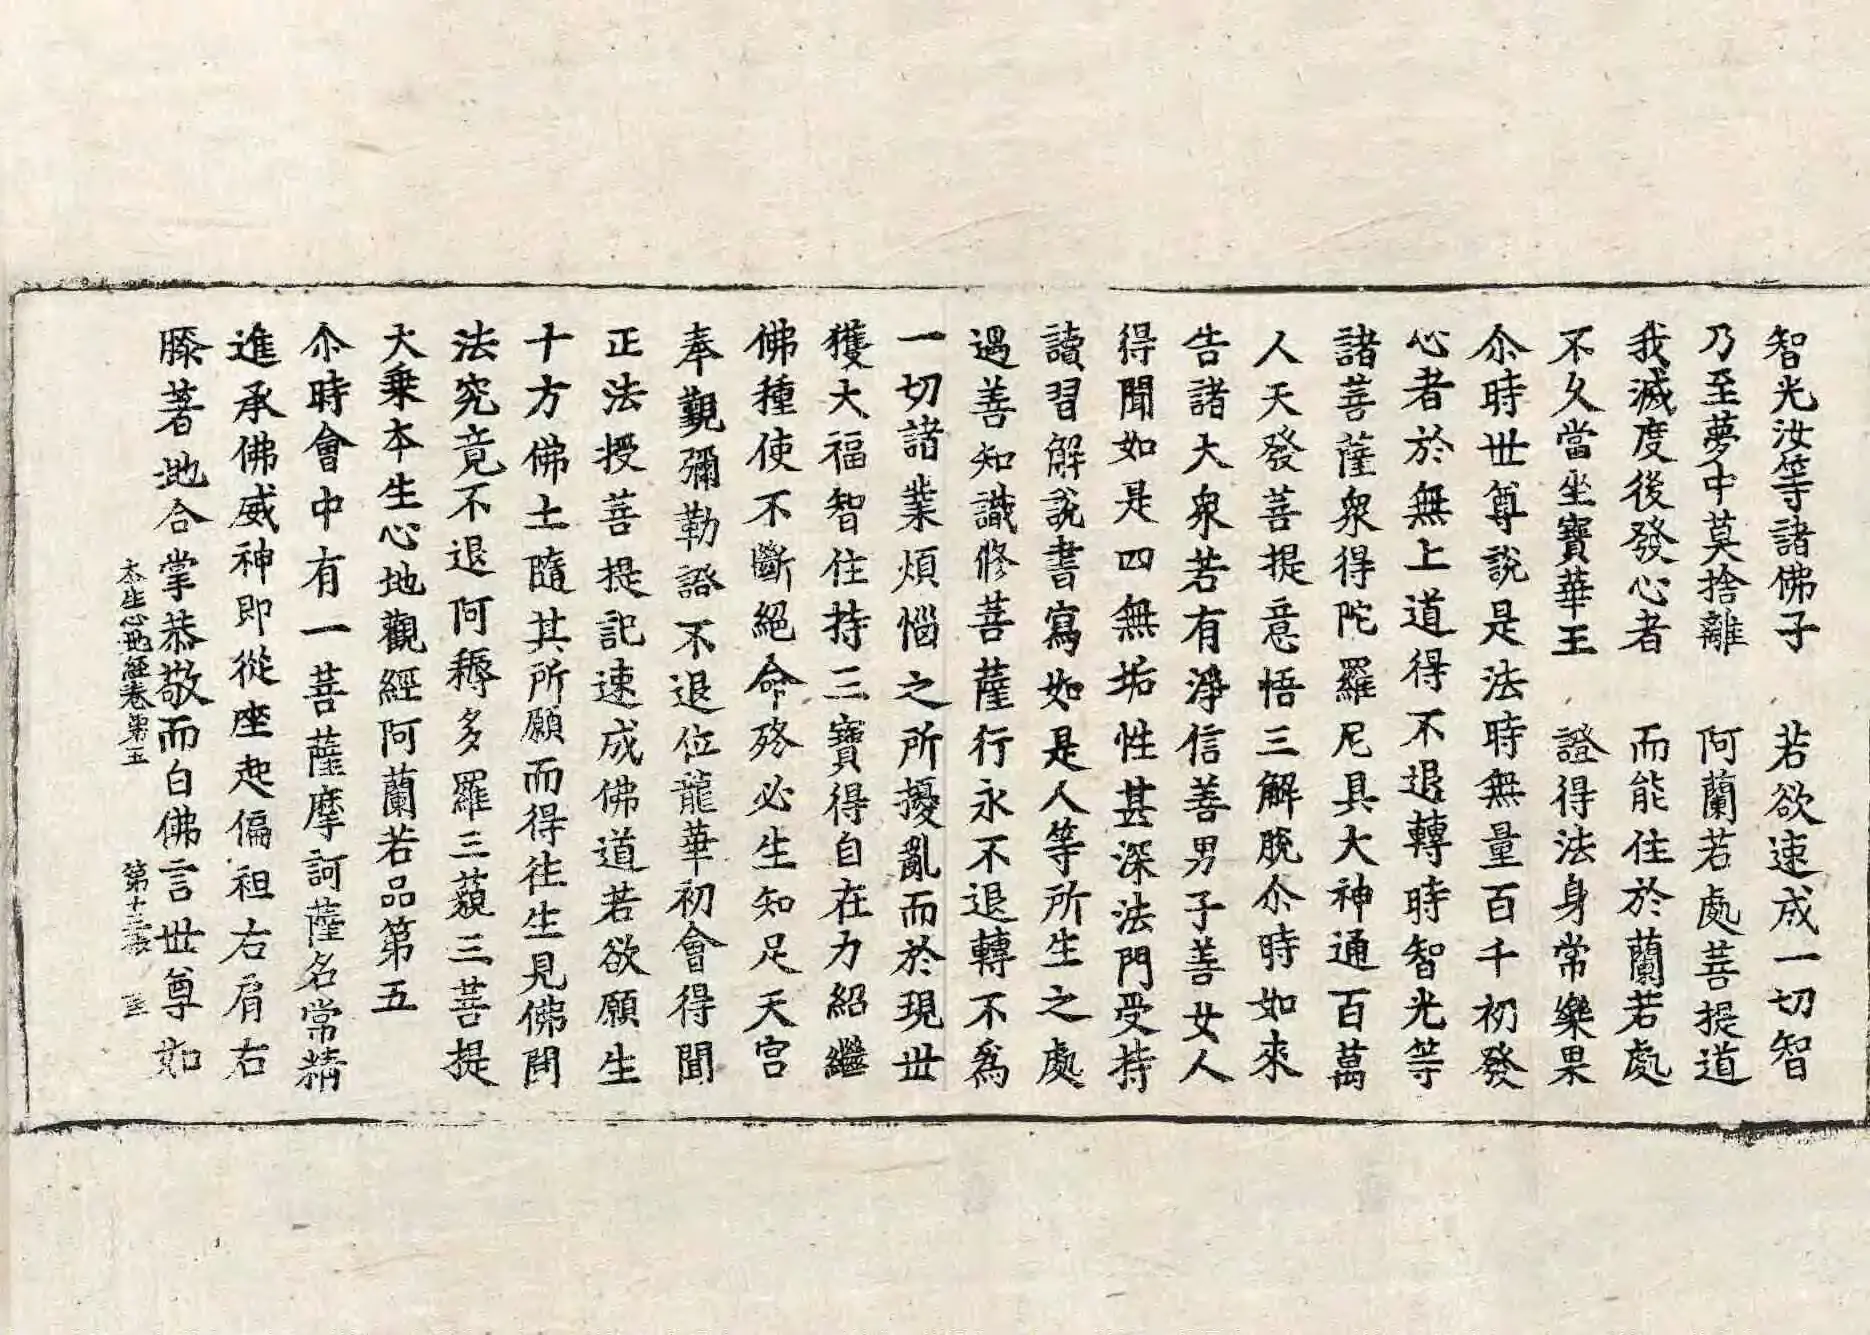 智光汝等諸佛子　若欲速成一切智
乃至夢中莫捨離　阿蘭若處菩提道
我滅度後發心者　而能住於蘭若處
不久當坐寶華王　證得法身常樂果
尒時世尊說是法時無量百千初發
心者於無上道得不退轉時智光等
諸菩薩衆得陀羅尼具大神通百萬
人天發菩提意悟三解脫尒時如來
告諸大衆若有淨信善男子善女人
得聞如是四無垢性甚深法門受持
讀習解說書寫如是人等所生之處
遇善知識修菩薩行永不退轉不爲
一切諸業煩惱之所擾亂而於現世
獲大福智住持三寶得自在力紹繼
佛種使不斷絕命終必生知足天宮
奉覲彌勒證不退位龍華初會得聞
正法授菩提記速成佛道若欲願生
十方佛土隨其所願而得往生見佛聞
法究竟不退阿耨多羅三藐三菩提
大乗本生心地觀經阿蘭若品第五
尒時會中有一菩薩摩訶薩名常精
進承佛威神即從座起偏袒右肩右
膝著地合掌恭敬而白佛言世尊如
本生心地經卷第五　第十三張